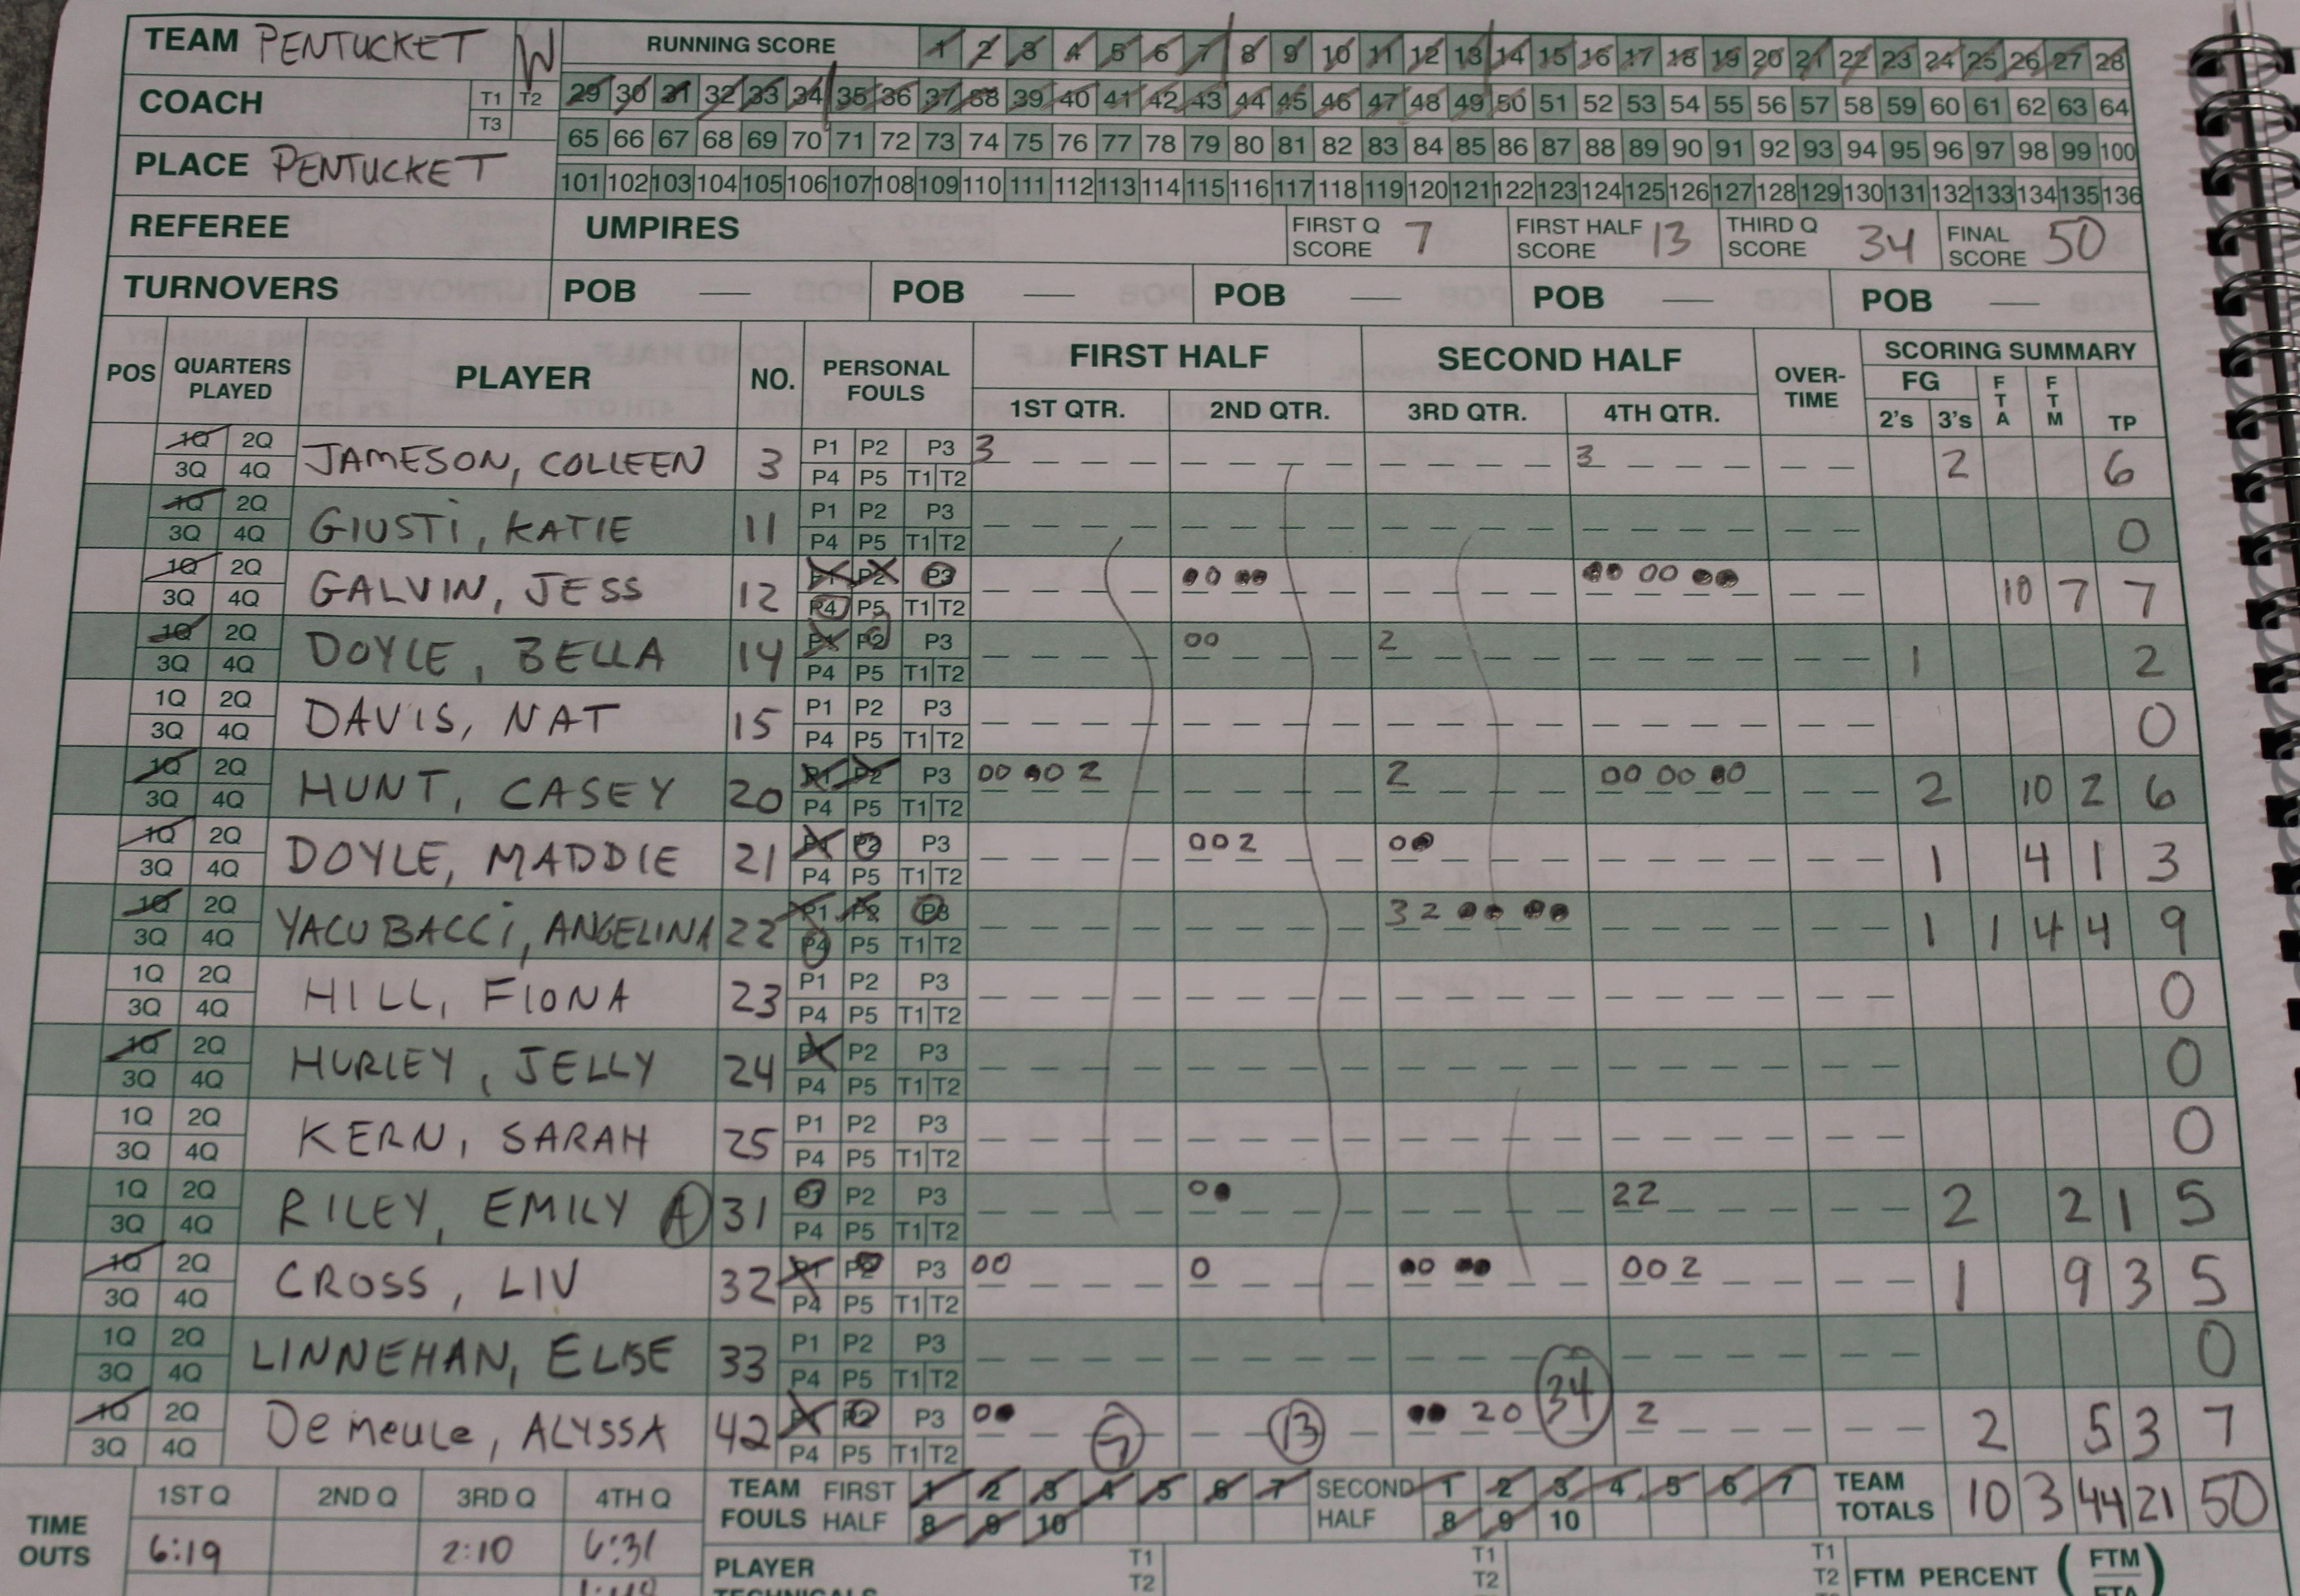 TEAM PENTUCKET W RUNNING SCORE 1 2 3 4 5 6 7 8 9 10 11 12 13 14 15 16 17 18 19 20 21 22 23 24 25 26 27 28
COACH T1 T2 T3 29 30 31 32 33 34 35 36 37 38 39 40 41 42 43 44 45 46 47 48 49 50 51 52 53 54 55 56 57 58 59 60 61 62 63 64
65 66 67 68 69 70 71 72 73 74 75 76 77 78 79 80 81 82 83 84 85 86 87 88 89 90 91 92 93 94 95 96 97 98 99 100
PLACE PENTUCKET 101 102 103 104 105 106 107 108 109 110 111 112 113 114 115 116 117 118 119 120 121 122 123 124 125 126 127 128 129 130 131 132 133 134 135 136
REFEREE UMPIRES FIRST Q SCORE 7 FIRST HALF SCORE 13 THIRD Q SCORE 34 FINAL SCORE 50
TURNOVERS POB — POB — POB — POB — POB —
POS QUARTERS PLAYED PLAYER NO. PERSONAL FOULS FIRST HALF SECOND HALF OVER-TIME SCORING SUMMARY
1ST QTR. 2ND QTR. 3RD QTR. 4TH QTR. FG 2's 3's FTA FTM TP
1Q 2Q JAMESON, COLLEEN 3 P1 P2 P3 3 3 2 6
3Q 4Q P4 P5 T1 T2
1Q 2Q GIUSTI, KATIE 11 P1 P2 P3 0
3Q 4Q P4 P5 T1 T2
1Q 2Q GALVIN, JESS 12 P1 P2 P3 ●0 ●● ●0 00 ●● 10 7 7
3Q 4Q P4 P5 T1 T2
1Q 2Q DOYLE, BELLA 14 P1 P2 P3 00 2 1 2
3Q 4Q P4 P5 T1 T2
1Q 2Q DAVIS, NAT 15 P1 P2 P3 0
3Q 4Q P4 P5 T1 T2
1Q 2Q HUNT, CASEY 20 P1 P2 P3 00 ●0 2 2 00 00 ●0 2 10 2 6
3Q 4Q P4 P5 T1 T2
1Q 2Q DOYLE, MADDIE 21 P1 P2 P3 00 2 0● 1 4 1 3
3Q 4Q P4 P5 T1 T2
1Q 2Q YACUBACCI, ANGELINA 22 P1 P2 P3 3 2 ●● ●● 1 1 4 4 9
3Q 4Q P4 P5 T1 T2
1Q 2Q HILL, FIONA 23 P1 P2 P3 0
3Q 4Q P4 P5 T1 T2
1Q 2Q HURLEY, JELLY 24 P1 P2 P3 0
3Q 4Q P4 P5 T1 T2
1Q 2Q KERN, SARAH 25 P1 P2 P3 0
3Q 4Q P4 P5 T1 T2
1Q 2Q RILEY, EMILY A 31 P1 P2 P3 0● 2 2 2 2 1 5
3Q 4Q P4 P5 T1 T2
1Q 2Q CROSS, LIV 32 P1 P2 P3 00 0 ●0 ●● 00 2 1 9 3 5
3Q 4Q P4 P5 T1 T2
1Q 2Q LINNEHAN, ELISE 33 P1 P2 P3 0
3Q 4Q P4 P5 T1 T2
1Q 2Q DeMeule, ALYSSA 42 P1 P2 P3 0● 7 13 ●● 2 0 34 2 2 5 3 7
3Q 4Q P4 P5 T1 T2
TIME OUTS 1ST Q 2ND Q 3RD Q 4TH Q TEAM FOULS FIRST HALF 1 2 3 4 5 6 7 SECOND HALF 1 2 3 4 5 6 7 TEAM TOTALS 10 3 44 21 50
8 9 10 8 9 10
6:19 2:10 6:31 PLAYER TECHNICALS T1 T2 T1 T2 T1 T2 FTM PERCENT (FTM FTA)